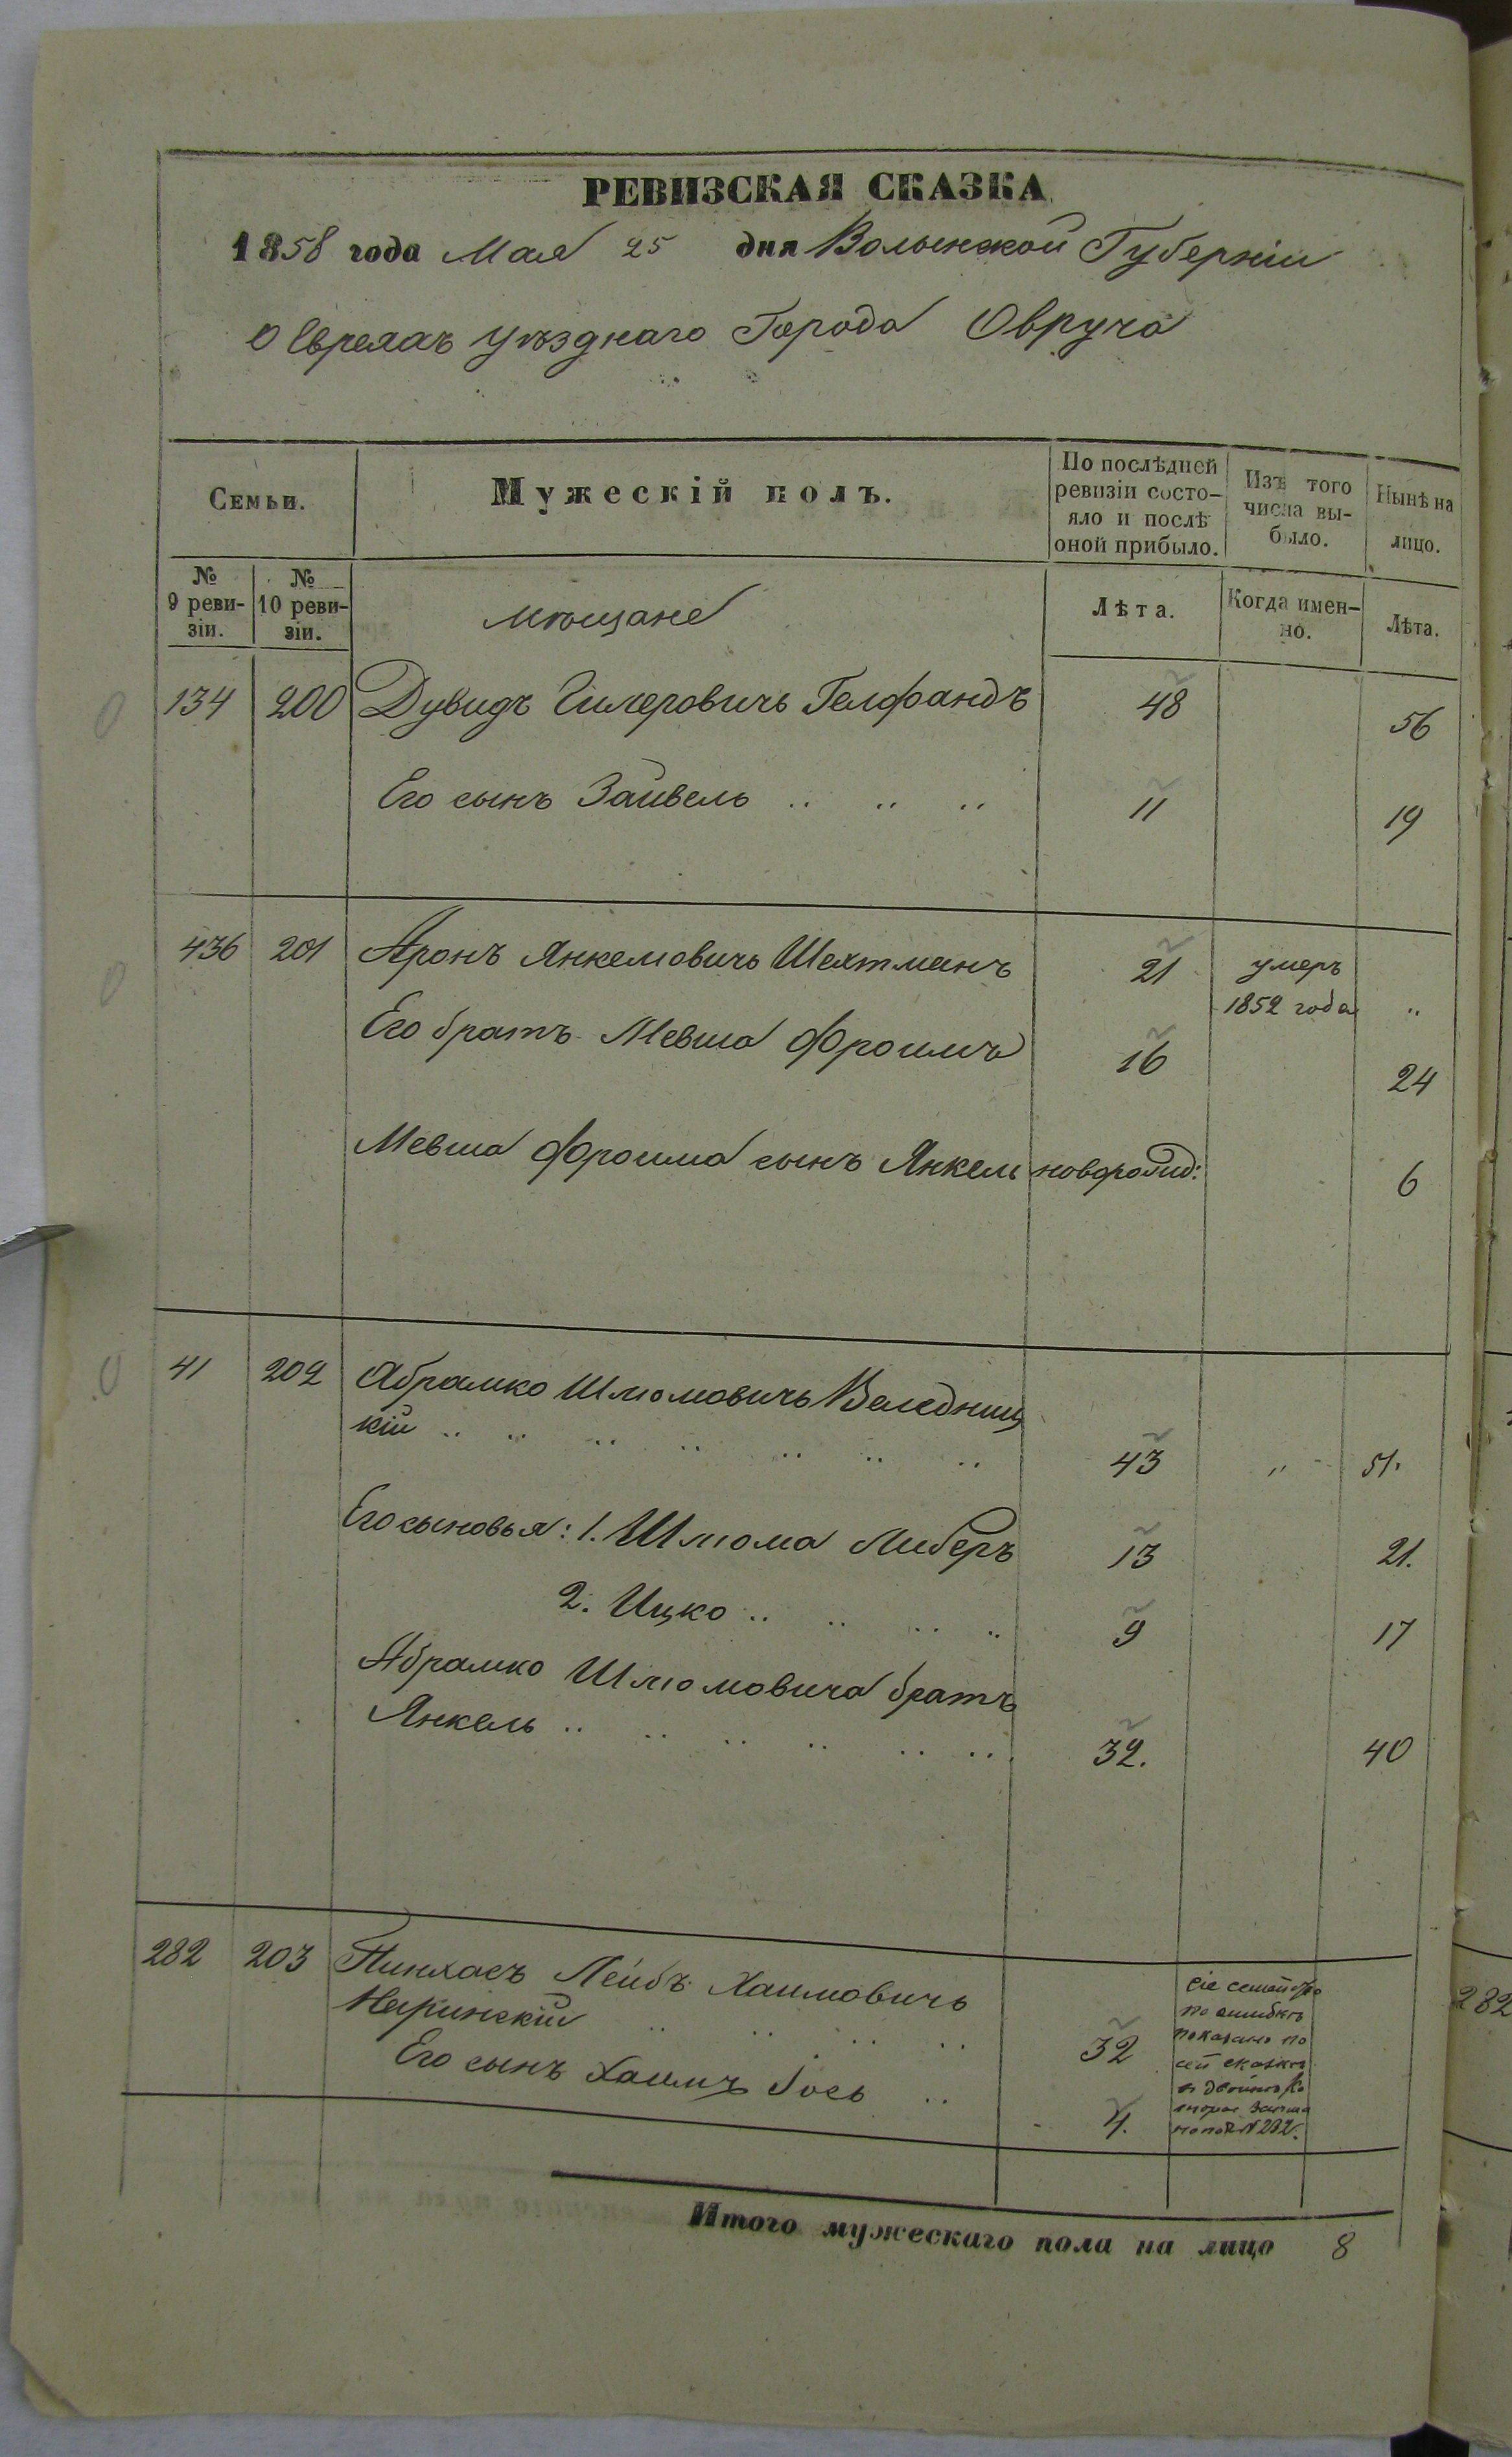 РЕВИЗСКАЯ СКАЗКА
1858 года Мая 25 дня Волынской Губерніи
О Евреяхъ Уѣзднаго Города Овруча
Семьи.
Мужескій полъ.
По послѣдней ревизіи состо-
яло и послѣ
оной прибыло.
Изъ того
числа вы-
было.
Нынѣ на
лицо.
№
9 реви-
зіи.
№
10 реви-
зіи.
мѣщане
Лѣта.
Когда имен-
но.
Лѣта.
134 200 Дувидъ Гелфандъ 48 56
Его сынъ Зайвель .. .. .. 11 19
436 201 Аронъ Янкелювичъ Шехтманъ 21 умеръ
1852 года „
Его братъ Мевша Фроимъ 16 24
Мевша Фроима сынъ Янкель новорожд: 6
41 202 Абрамко Шлюмовичъ Веледниц
кій .. .. .. .. .. .. .. 43 „ 51.
Его сыновья: 1. Шлюма Либеръ 13 21.
2. Ицко .. .. .. .. 9 17
Абрамко Шлюмовича братъ
Янкель .. .. .. .. .. .. 32. 40
282 203 Пинхасъ Лейбъ Хаимовичъ
Неринскій .. .. .. .. 32
Его сынъ Хаимъ Іось .. 4.
сіе семейство
по ошибкѣ
показано по
сей сказкѣ
Итого мужескаго пола на лицо 8
282